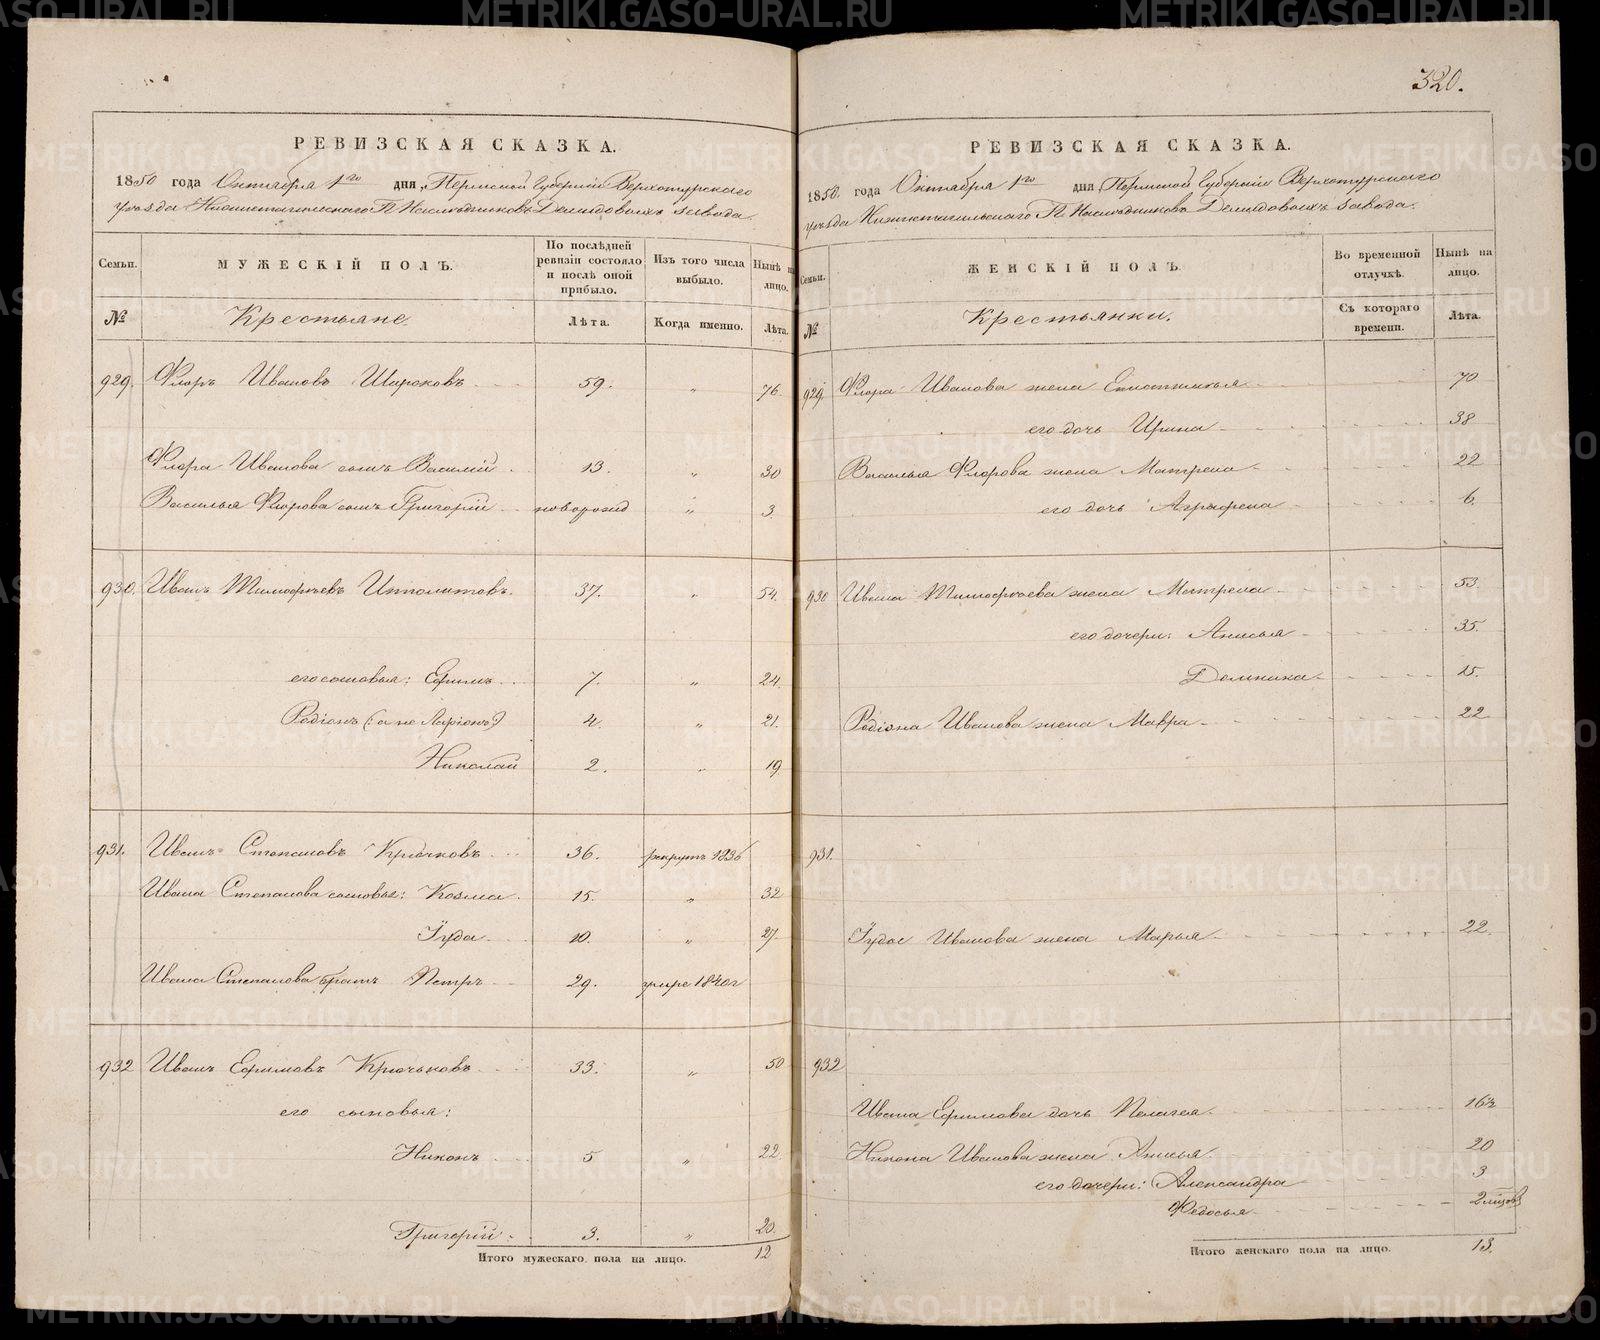 320.
РЕВИЗСКАЯ СКАЗКА.
1850 года Октября 1го дня, Пермской Губерніи Верхотурскаго
уѣзда Нижнетагильскаго Гг. Наслѣдниковъ Демидовыхъ завода.
Семьи. МУЖЕСКІЙ ПОЛЪ. По послѣдней ревизіи состояло и послѣ оной прибыло. Изъ того числа выбыло. Нынѣ на лицо.
№ Крестьяне. Лѣта. Когда именно. Лѣта.
929. Флоръ Ивановъ Широковъ 59. „ 76.
Флора Иванова сынъ Василій 13. „ 30
Василья Флорова сынъ Григорій новорожд „ 3.
930. Иванъ Тимофѣевъ Ипполитовъ. 37. „ 54.
его сыновья: Ефимъ 7. „ 24.
Родіонъ (: а не Ларіонъ :) 4. „ 21.
Николай 2. „ 19
931. Иванъ Степановъ Крючковъ 36. рекрутъ 1836
Ивана Степанова сыновья: Козма 15. „ 32
Іуда 10. „ 27
Ивана Степанова братъ Петръ 29. умре 1840г
932 Иванъ Ефимовъ Крючьковъ 33. „ 50
его сыновья:
Никонъ 5 „ 22.
Григорій 3. „ 20.
Итого мужескаго пола на лицо. 12
РЕВИЗСКАЯ СКАЗКА.
1850 года Октября 1го дня, Пермской Губерніи Верхотурскаго
уѣзда Нижнетагильскаго Гг. Наслѣдниковъ Демидовыхъ завода.
Семьи. ЖЕНСКІЙ ПОЛЪ. Во временной отлучкѣ. Нынѣ на лицо.
№ Крестьянки. Съ котораго времени. Лѣта.
929. Флора Иванова жена Епистимья 70
его дочь Ирина 38
Василья Флорова жена Матрена 22
его дочь Аграфена 6.
930 Ивана Тимофѣева жена Матрена 53
его дочери: Анисья 35.
Домника 15.
Родіона Иванова жена Мавра 22
931.
Іуды Иванова жена Марья 22.
932
Ивана Ефимова дочь Пелагея 16½
Никона Иванова жена Анисья 20
его дочери: Александра 3
Федосья 2 мѣсяцовъ
Итого женскаго пола на лицо. 13.
METRIKI.GASO-URAL.RU